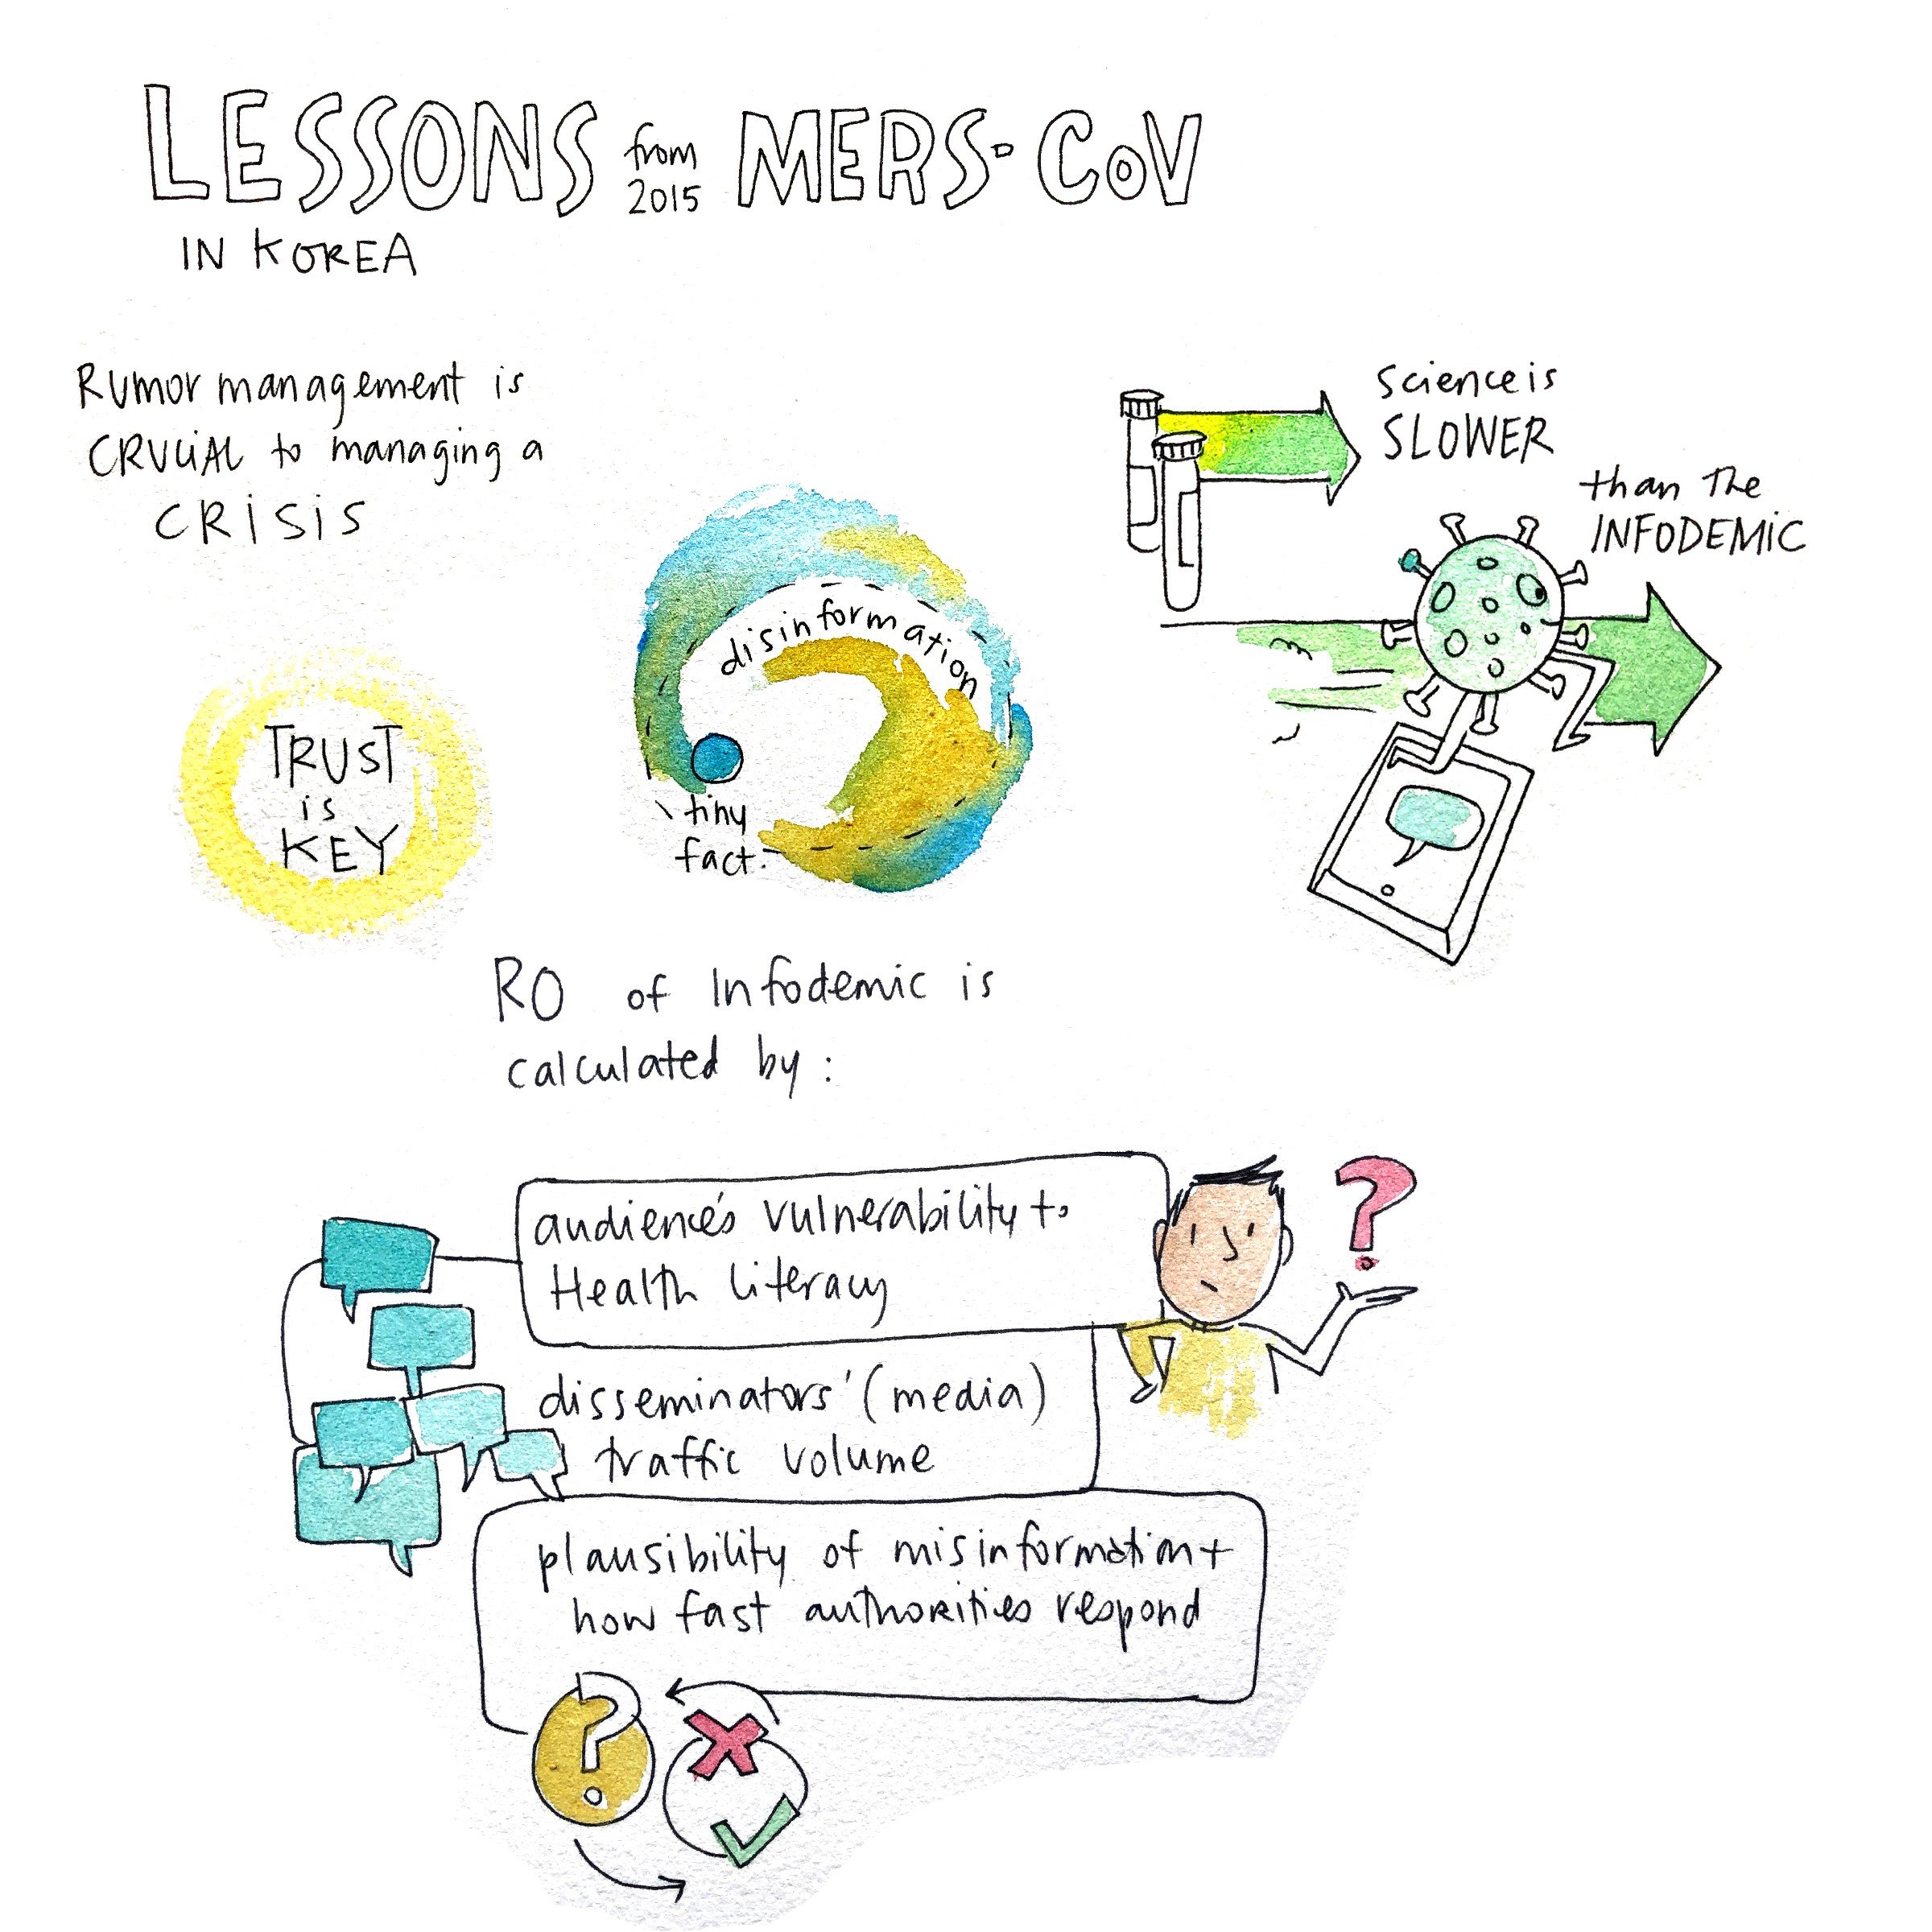 LESSONS from 2015 MERS-CoV
IN KOREA
Rumor management is
CRUCIAL to managing a
CRISIS
TRUST
is
KEY
disinformation
tiny
fact
Science is
SLOWER
than the
INFODEMIC
R0 of Infodemic is
calculated by:
audience's vulnerability to
Health literacy
disseminators' (media)
traffic volume
plausibility of misinformation +
how fast authorities respond
?
?